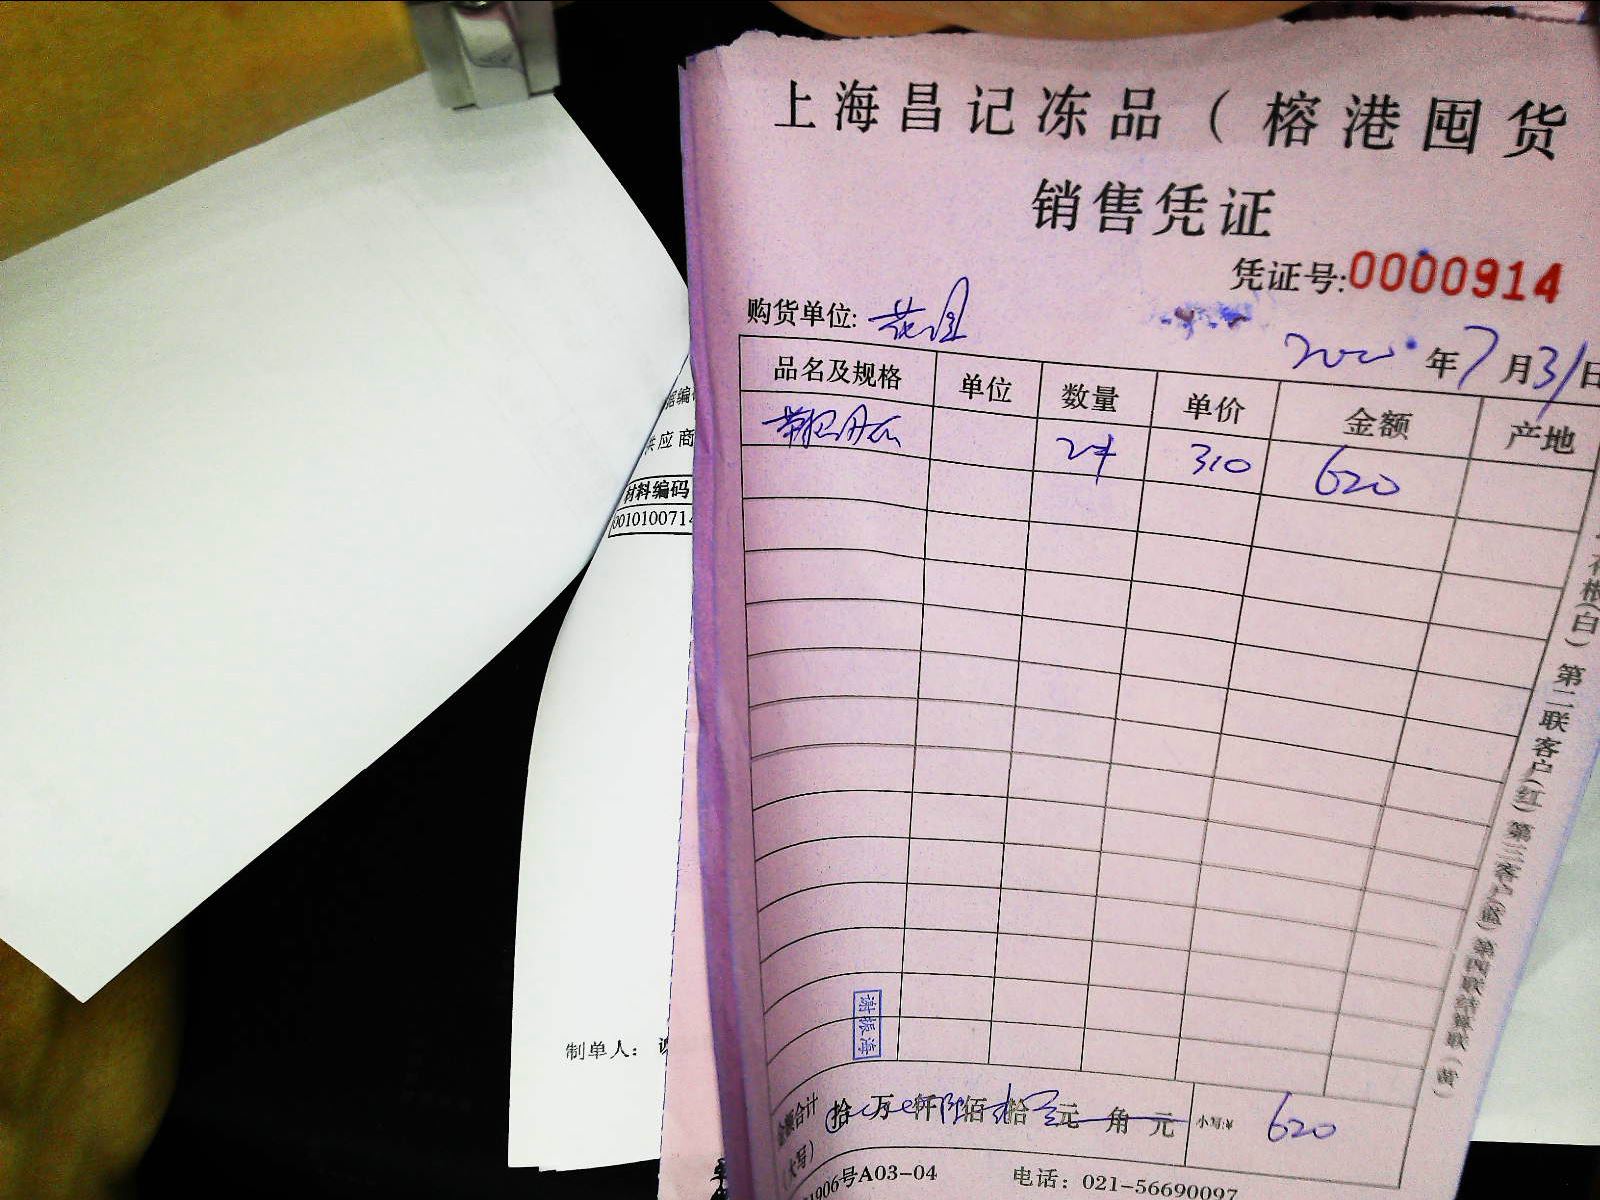 上海昌记冻品（榕港囤货
销售凭证
凭证号:0000914
购货单位: 花园
年7月31日
品名及规格 单位 数量 单价 金额 产地
2件 310 620
存根(白) 第二联客户(红) 第三客户(蓝) 第四联结算联(黄)
供应商
材料编码
001010071
制单人:
谢振海
金额合计(大写) 拾 万 仟 陆佰 拾 元 角 元 小写:¥ 620
906号A03-04 电话: 021-56690097